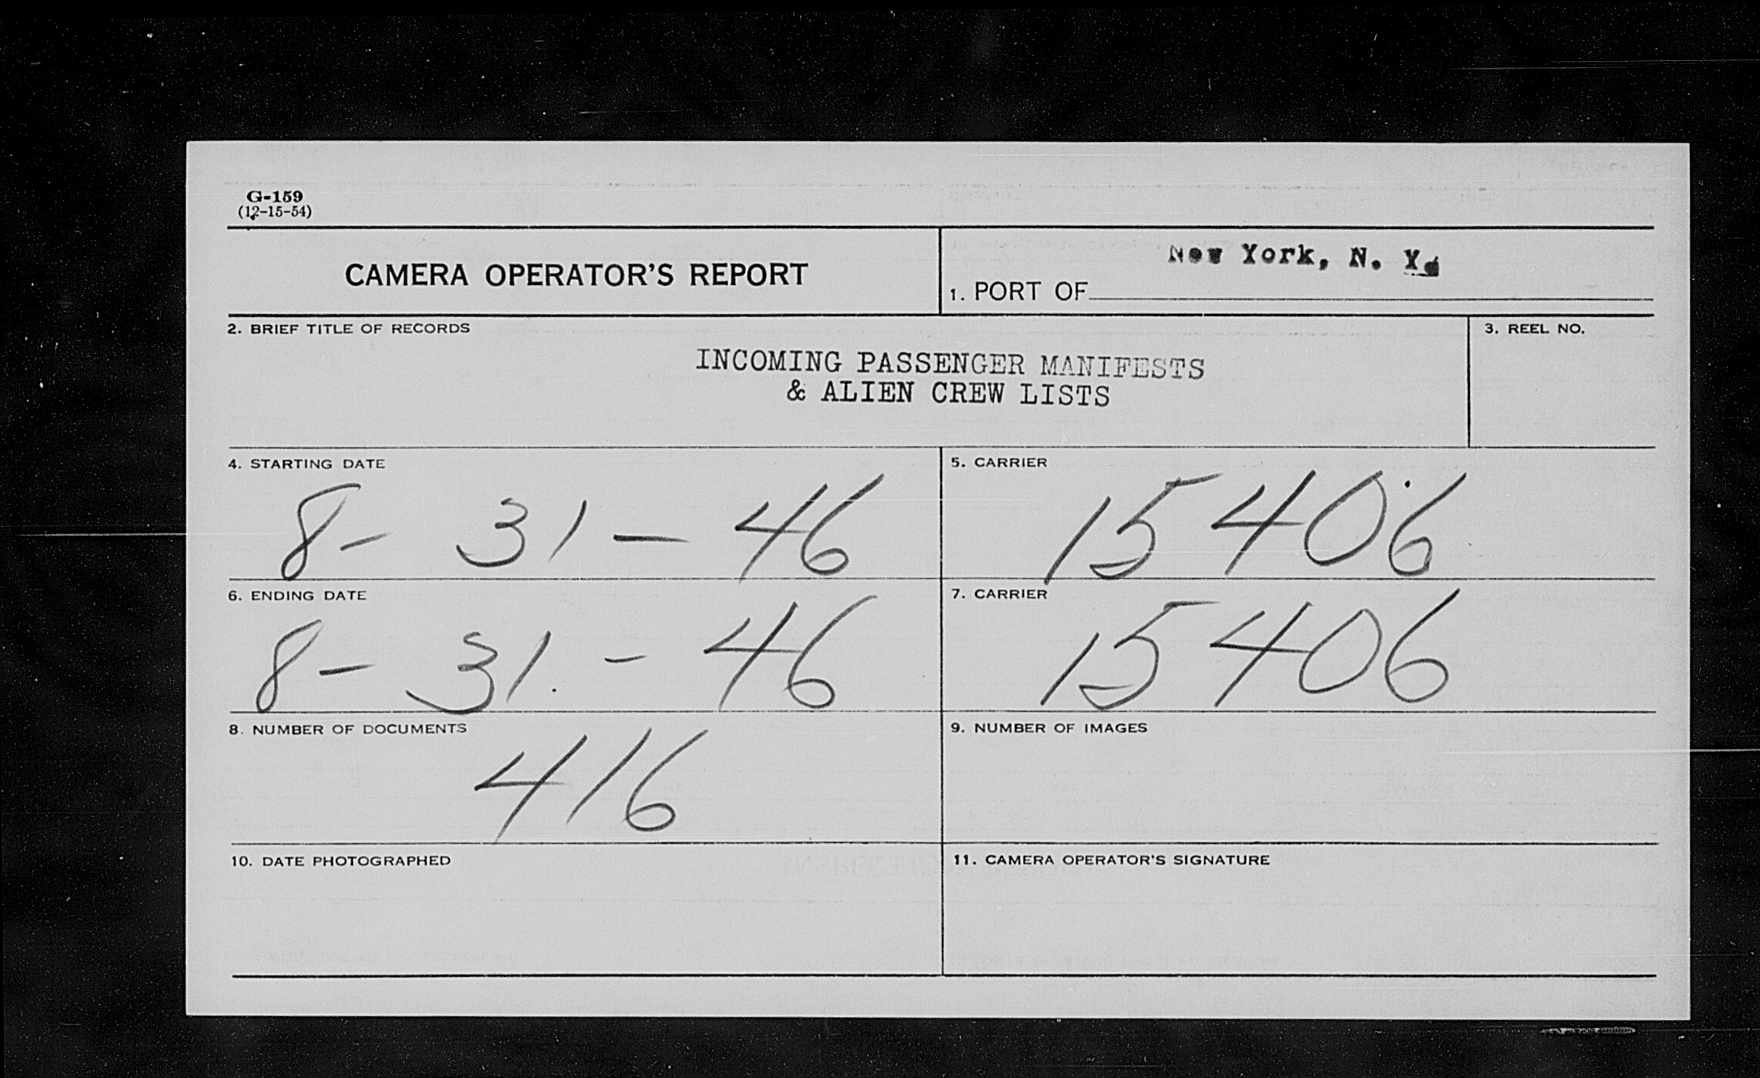 G-159
(12-15-54)
CAMERA OPERATOR'S REPORT
New York, N. Y.
1. PORT OF
2. BRIEF TITLE OF RECORDS
3. REEL NO.
INCOMING PASSENGER MANIFESTS
& ALIEN CREW LISTS
4. STARTING DATE
8- 31-46
5. CARRIER
15406
6. ENDING DATE
8- 31.-46
7. CARRIER
15406
8. NUMBER OF DOCUMENTS
416
9. NUMBER OF IMAGES
10. DATE PHOTOGRAPHED
11. CAMERA OPERATOR'S SIGNATURE